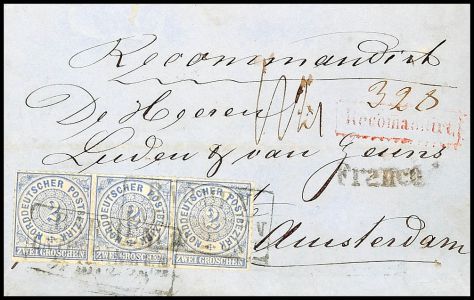 Recommandirt
De Heeren
328
Recomandirt
Luden & van Geuns
Franco
Amsterdam
NORDDEUTSCHER POSTBEZIRK
2
ZWEI GROSCHEN
NORDDEUTSCHER POSTBEZIRK
2
ZWEI GROSCHEN
NORDDEUTSCHER POSTBEZIRK
2
ZWEI GROSCHEN